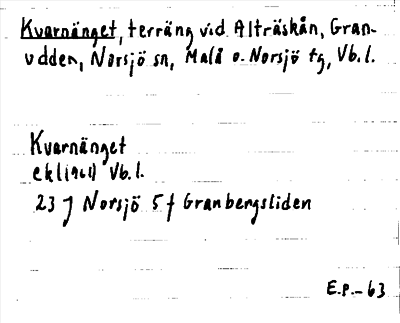 Kvarnänget, terräng vid Alträskån, Gran-
udden, Norsjö sn, Malå o. Norsjö tg, Vb. l.
Kvarnänget
ekl(1961) Vb. l.
23 J Norsjö 5 f Granbergsliden
E.P.-63